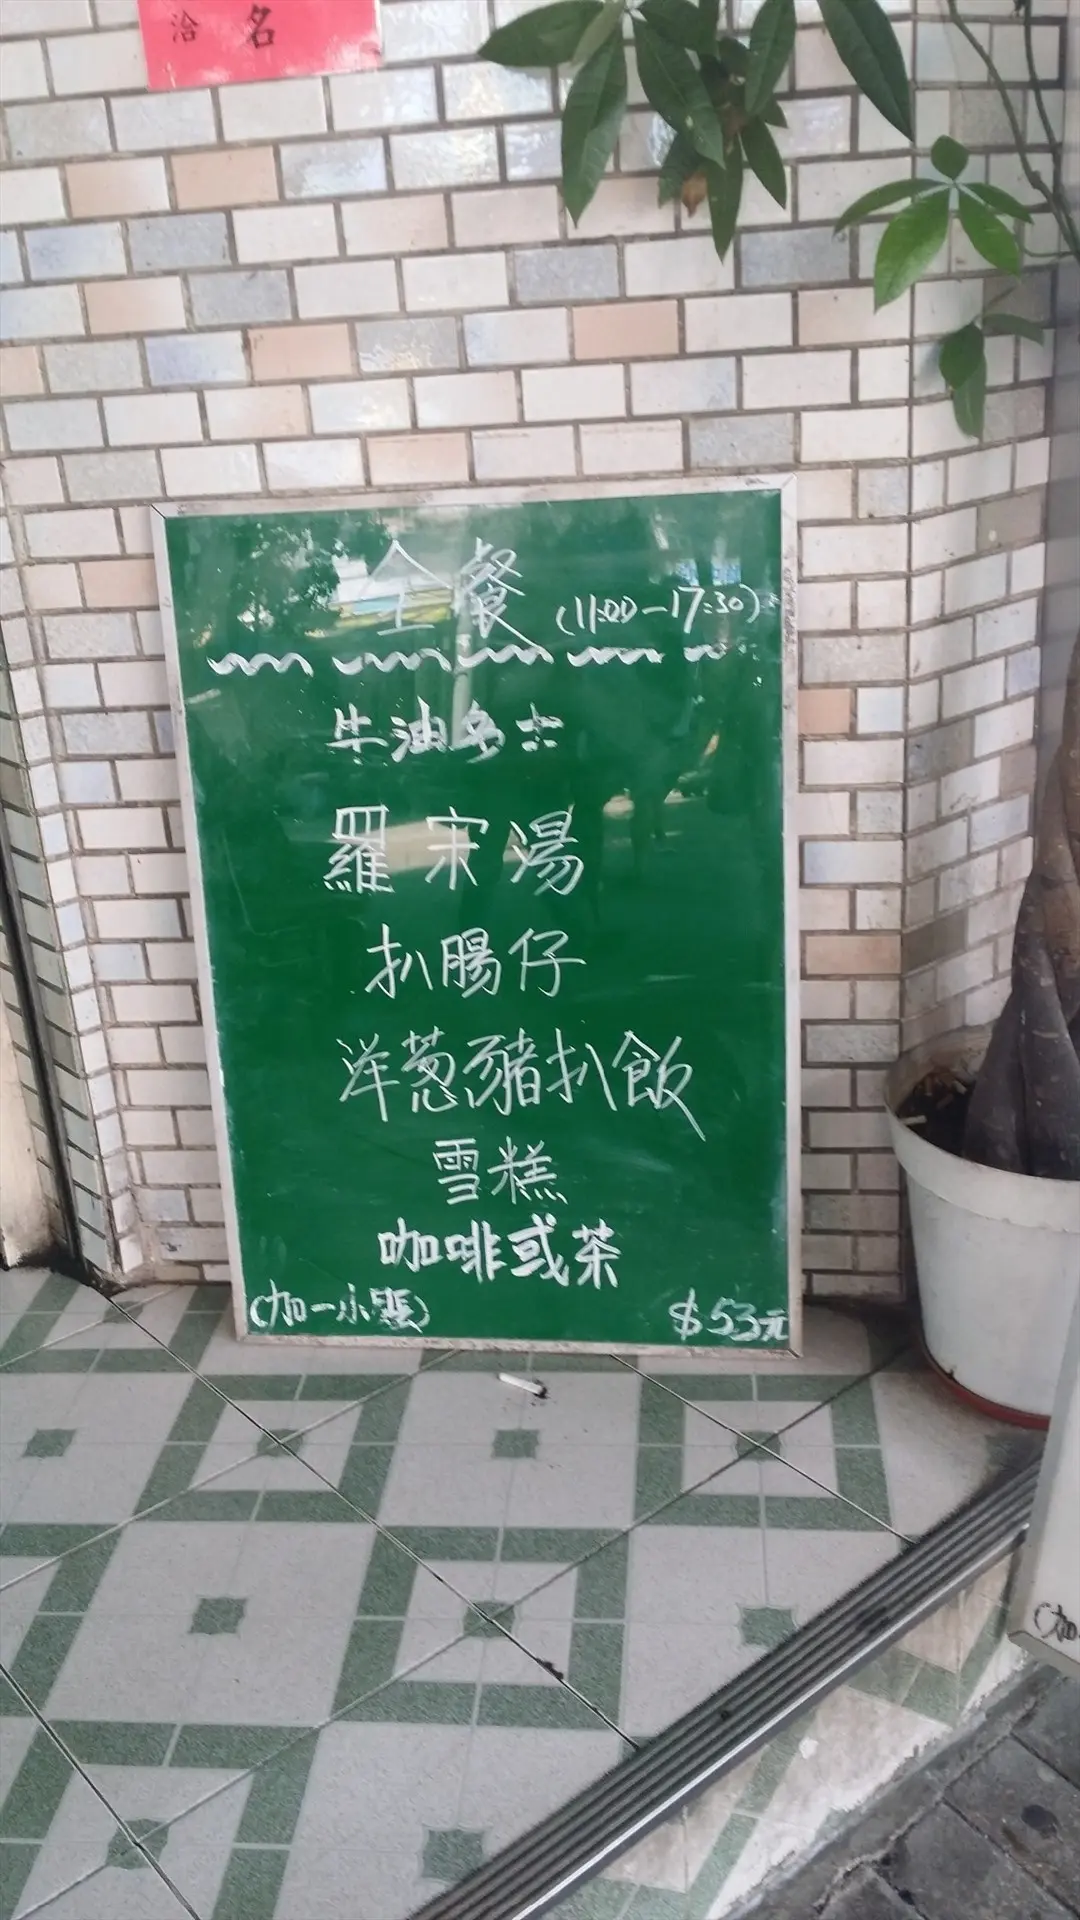 洽 名
全餐 (11:00-17:30)
牛油多士
羅宋湯
扒腸仔
洋葱豬扒飯
雪糕
咖啡或茶
(加一小賬)
$53元
(加